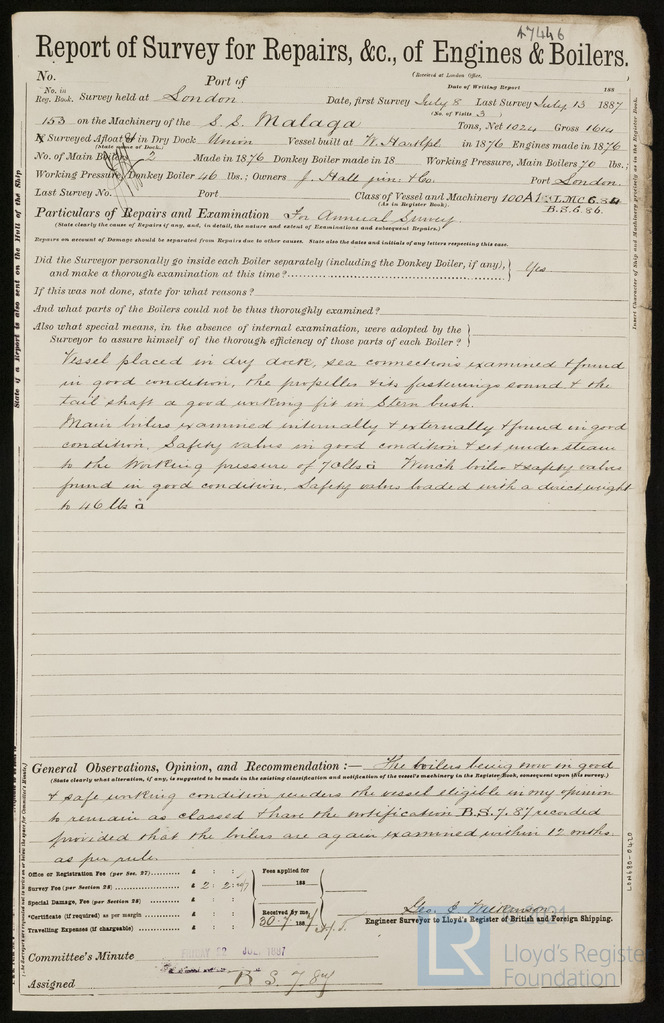 17446
Report of Survey for Repairs, &c., of Engines & Boilers.
(Received at London Office,
No. Port of Date of Writing Report 188
No. in Reg. Book. Survey held at London Date, first Survey July 8 Last Survey July 13 1887
(No. of Visits 3 )
153 on the Machinery of the S.S. Malaga Tons, Net 1024 Gross 1614
Surveyed Afloat or in Dry Dock Union Vessel built at W. Hartlpl in 1876 Engines made in 1876
(State name of Dock.)
No. of Main Boilers 2 Made in 1876 Donkey Boiler made in 18 Working Pressure, Main Boilers 70 lbs.;
Working Pressure, Donkey Boiler 46 lbs.; Owners J. Hall jun: & Co. Port London.
Last Survey No. Port Class of Vessel and Machinery 100A1 LMC 6.84
(As in Register Book). B.S.6.86.
Particulars of Repairs and Examination For Annual Survey.
(State clearly the cause of Repairs if any, and, in detail, the nature and extent of Examinations and subsequent Repairs.)
Repairs on account of Damage should be separated from Repairs due to other causes. State also the dates and initials of any letters respecting this case.
Did the Surveyor personally go inside each Boiler separately (including the Donkey Boiler, if any),
and make a thorough examination at this time? Yes
If this was not done, state for what reasons?
And what parts of the Boilers could not be thus thoroughly examined?
Also what special means, in the absence of internal examination, were adopted by the
Surveyor to assure himself of the thorough efficiency of those parts of each Boiler?
Vessel placed in dry dock, sea connections examined & found
in good condition, the propeller & its fastenings sound & the
tail shaft a good working fit in Stern bush.
Main boilers examined internally & externally & found in good
condition. Safety valves in good condition & set under steam
to the Working pressure of 70 lbs Winch boiler & safety valves
found in good condition. Safety valves loaded with a direct weight
to 46 lbs
General Observations, Opinion, and Recommendation:— The boilers being now in good
(State clearly what alteration, if any, is suggested to be made in the existing classification and notification of the vessel's machinery in the Register Book, consequent upon this survey.)
& safe working condition renders the vessel eligible in my opinion
to remain as classed & have the notification B.S.7.87 recorded
provided that the boilers are again examined within 12 onths.
as per rule.
Office or Registration Fee (per Sec. 27) £ : : Fees applied for
Survey Fee (per Section 28) £ 2 : 2 : 188
Special Damage, Fee (per Section 28) £ : :
*Certificate (if required) as per margin £ : : Received by me,
Travelling Expenses (if chargeable) £ : : 30.7.1887
Geo. Wilkinson
Engineer Surveyor to Lloyd's Register of British and Foreign Shipping.
Committee's Minute FRIDAY 22 JUL 1887
Assigned B S. 7. 87
State if a Report is also sent on the Hull of the Ship
Insert Character of Ship and Machinery precisely as in the Register Book.
LON680-0420
LR
Lloyd's Register
Foundation